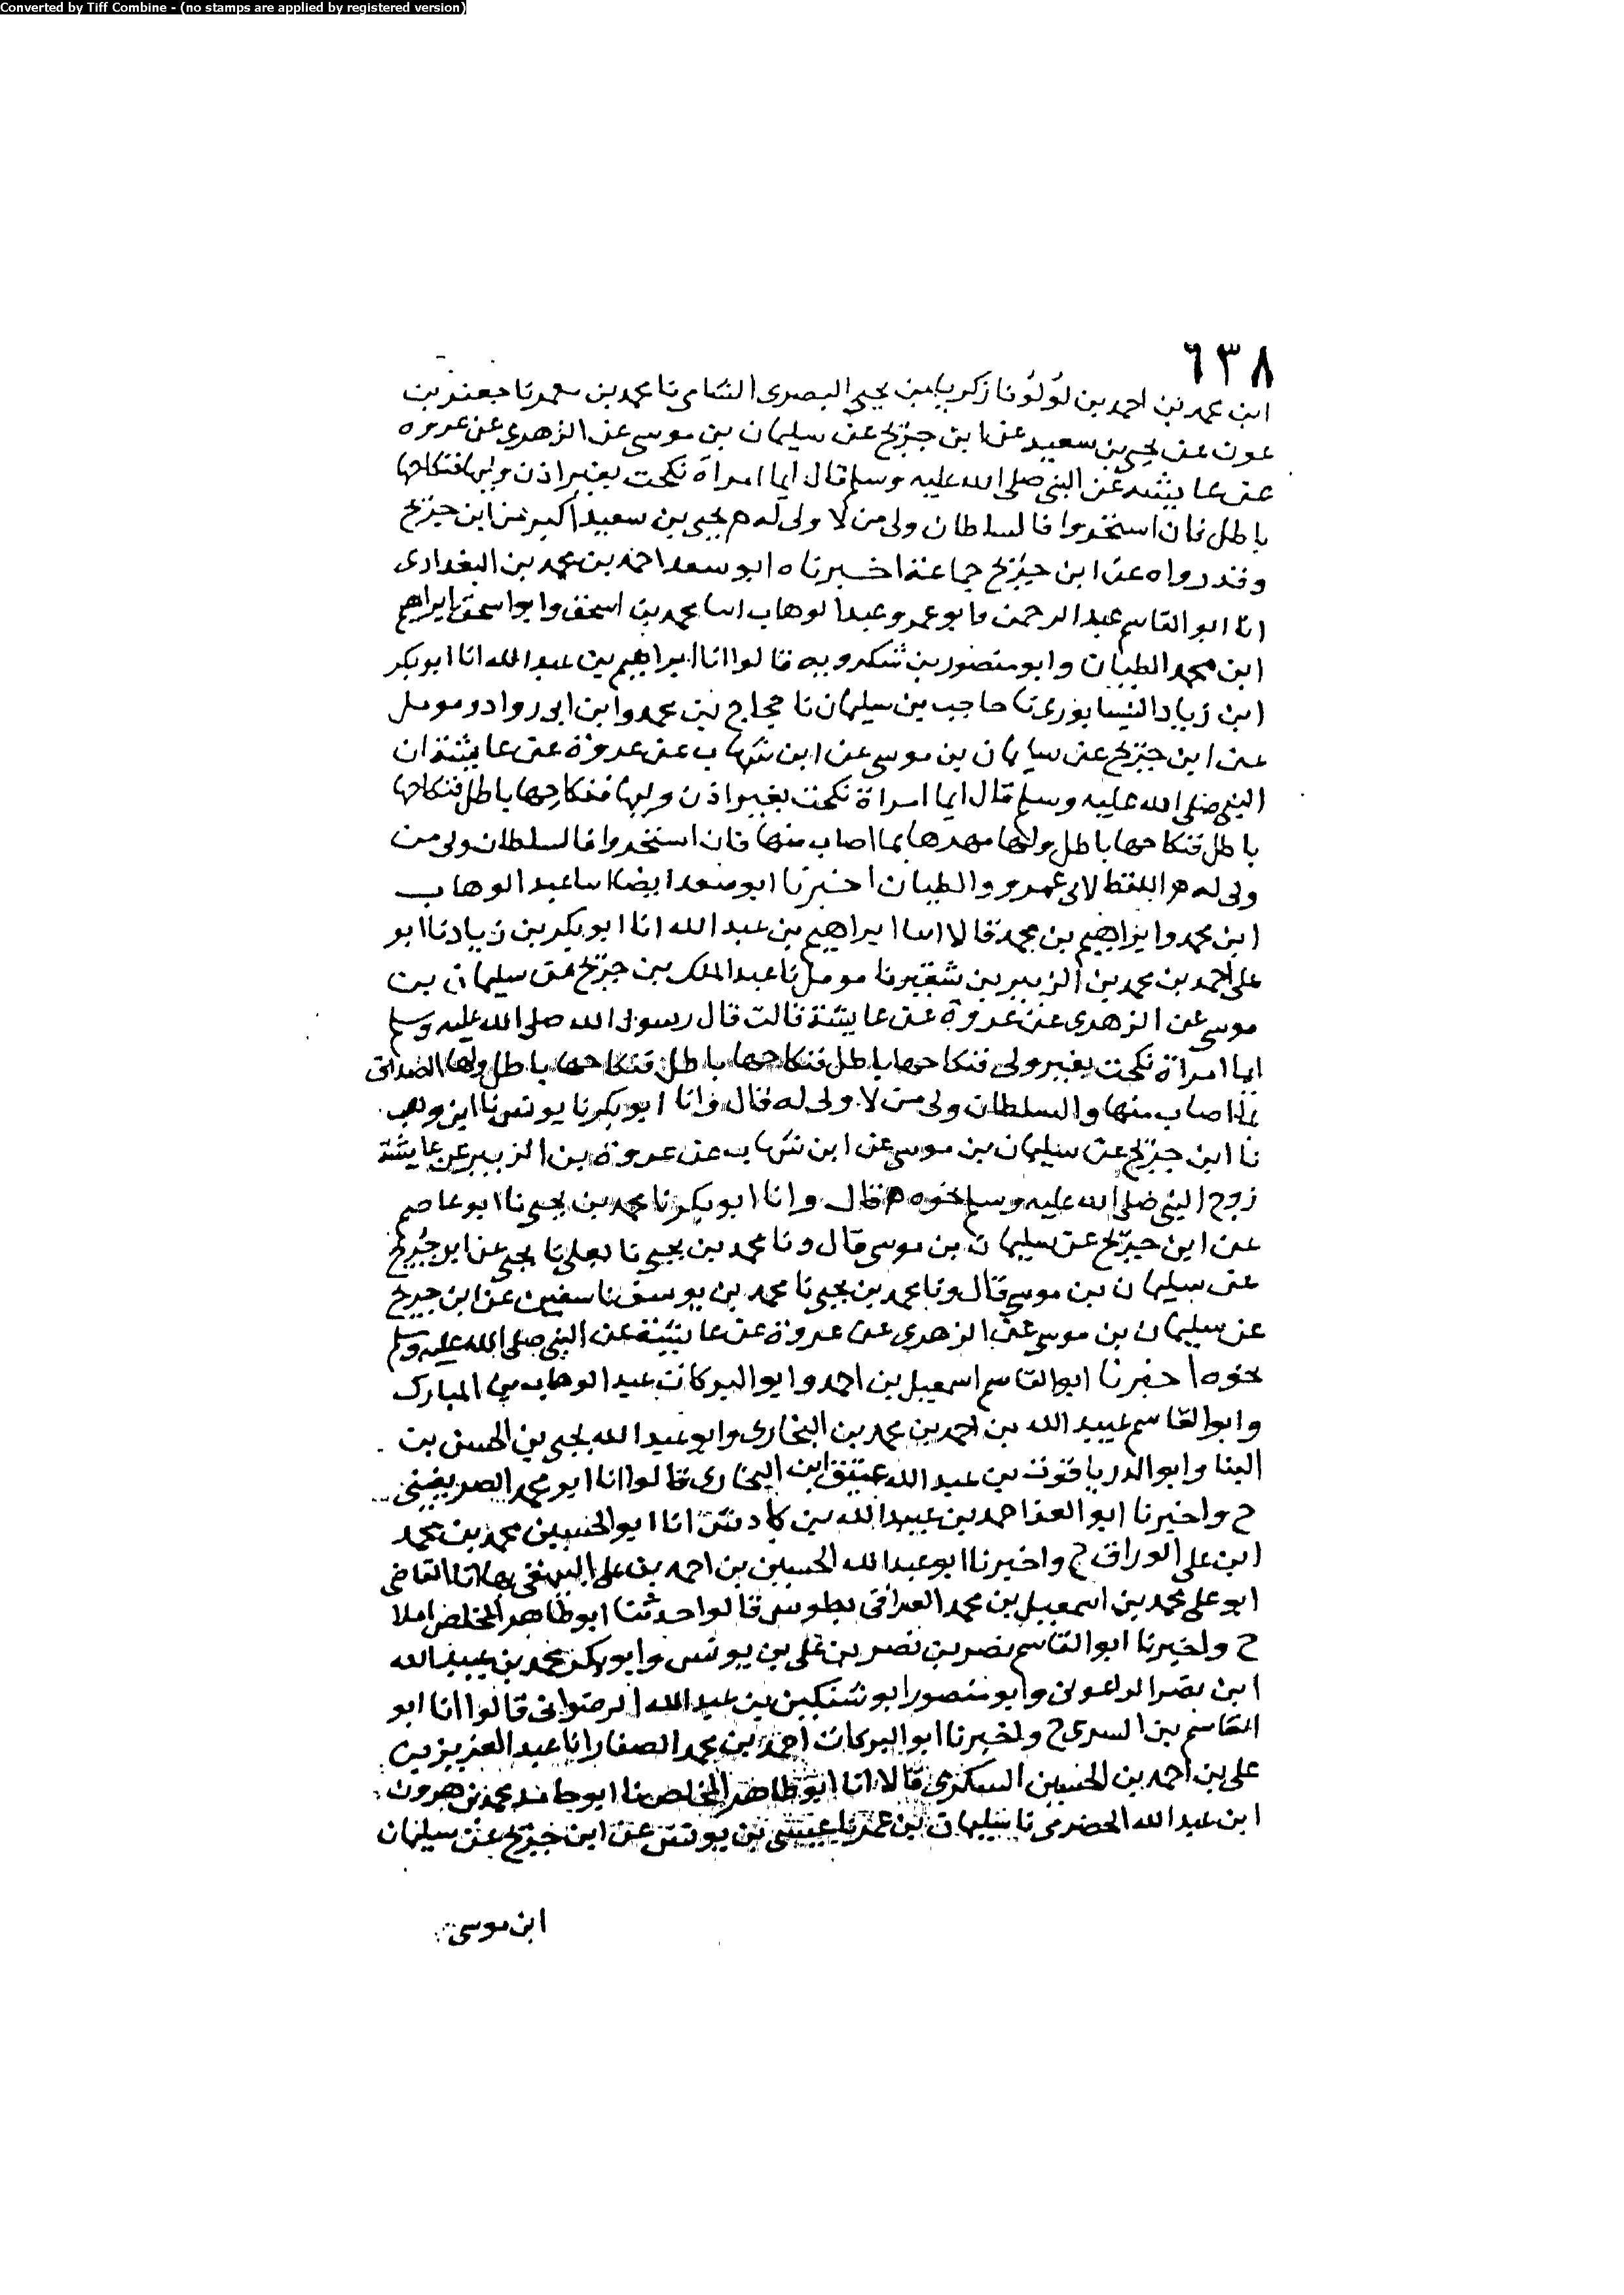 Converted by Tiff Combine - (no stamps are applied by registered version)
٦٣٨
ابن محمد بن احمد بن لؤلؤ نا زكريا بن يحيى البصرى الشامى نا محمد بن نا جعفر بن
عون عن يحيى بن سعيد عن ابن جريج عن سليمان بن موسى عن الزهرى عن عروه
عن عايشه عن النبى صلى الله عليه وسلم قال ايما امراة نكحت بغير اذن وليها فنكاحها
باطل فان استجروا فالسلطان ولى من لا ولى له م يحيى بن سعيد اكبر من ابن جريج
وقد رواه عن ابن جريج جماعة اخبرناه ابو سعد احمد بن محمد بن البغدادى
انا ابو القاسم عبد الرحمن وابو عمرو عبد الوهاب اسا محمد بن اسحق وابو اسحق ابراهيم
ابن محمد الطيان وابو منصور بن شكرويه قالوا انا ابراهيم بن عبد الله انا ابو بكر
ابن زياد النيسابورى نا حاجب بن سليمان نا حجاج بن محمد وابن ابى رواد ومومل
عن ابن جريج عن سليمان بن موسى عن ابن شهاب عن عروة عن عايشة ان
النبى صلى الله عليه وسلم قال ايما امراة نكحت بغير اذن وليها فنكاحها باطل فنكاحها
باطل فنكاحها باطل ولها مهرها بما اصاب منها فان استجروا فالسلطان ولى من
ولى له م اللفظ لابى عمرو والطيان اخبرنا ابو سعد ايضا اسا عبد الوهاب
ابن محمد وابراهيم بن محمد قالا اسا ابراهيم بن عبد الله انا ابو بكر بن زياد نا ابو
على احمد بن محمد بن الزبير بن شقير نا مومل نا عبد الملك بن جريج عن سليمان بن
موسى عن الزهرى عن عروة عن عايشة قالت قال رسول الله صلى الله عليه وسلم
ايما امراة نكحت بغير ولى فنكاحها باطل فنكاحها باطل فنكاحها باطل ولها الصداق
بما اصاب منها والسلطان ولى من لا ولى له قال وانا ابو بكر نا يونس نا ابن وهب
نا ابن جريج عن سليمان بن موسى عن ابن شهاب عن عروة بن الزبير عن عايشة
زوج النبى صلى الله عليه وسلم نحوه م قال وانا ابو بكر نا محمد بن يحيى نا ابو عاصم
عن ابن جريج عن سليمان بن موسى قال ونا محمد بن يحيى نا يعلى نا يحيى عن ابن جريج
عن سليمان بن موسى قال ونا محمد بن يحيى نا محمد بن يوسف نا سفين عن ابن جريج
عن سليمان بن موسى عن الزهرى عن عروة عن عايشة عن النبى صلى الله عليه وسلم
نحوه اخبرنا ابو القاسم اسمعيل بن احمد وابو البركات عبد الوهاب بن المبارك
وابو القاسم عبيد الله بن احمد بن محمد بن البخارى وابو عبد الله يحيى بن الحسن بن
البنا وابو الدر ياقوت بن عبد الله عتيق ابن البخارى قالوا انا ابو محمد الصريفينى
ح واخبرنا ابو العز احمد بن عبيد الله بن كادش انا ابو الحسين محمد بن محمد
ابن على الوراق ح واخبرنا ابو عبد الله الحسين بن احمد بن على البيهقى بها انا القاضى
ابو على محمد بن اسمعيل بن محمد العراقى بطوس قالوا حدثنا ابو طاهر المخلص املا
ح واخبرنا ابو القاسم نصر بن نصر بن على بن يونس وابو بكر محمد بن عبيد الله
ابن نصر الزاغونى وابو منصور انوشتكين بن عبد الله الرضوانى قالوا انا ابو
القاسم بن البسرى ح واخبرنا ابو البركات احمد بن محمد الصفار انا عبد العزيز بن
على بن احمد بن الحسين السكرى قالا انا ابو طاهر المخلص نا ابو حامد محمد بن هرون
ابن عبد الله الحضرمى نا سليمان بن عمر نا عيسى بن يونس عن ابن جريج عن سليمان
ابن موسى